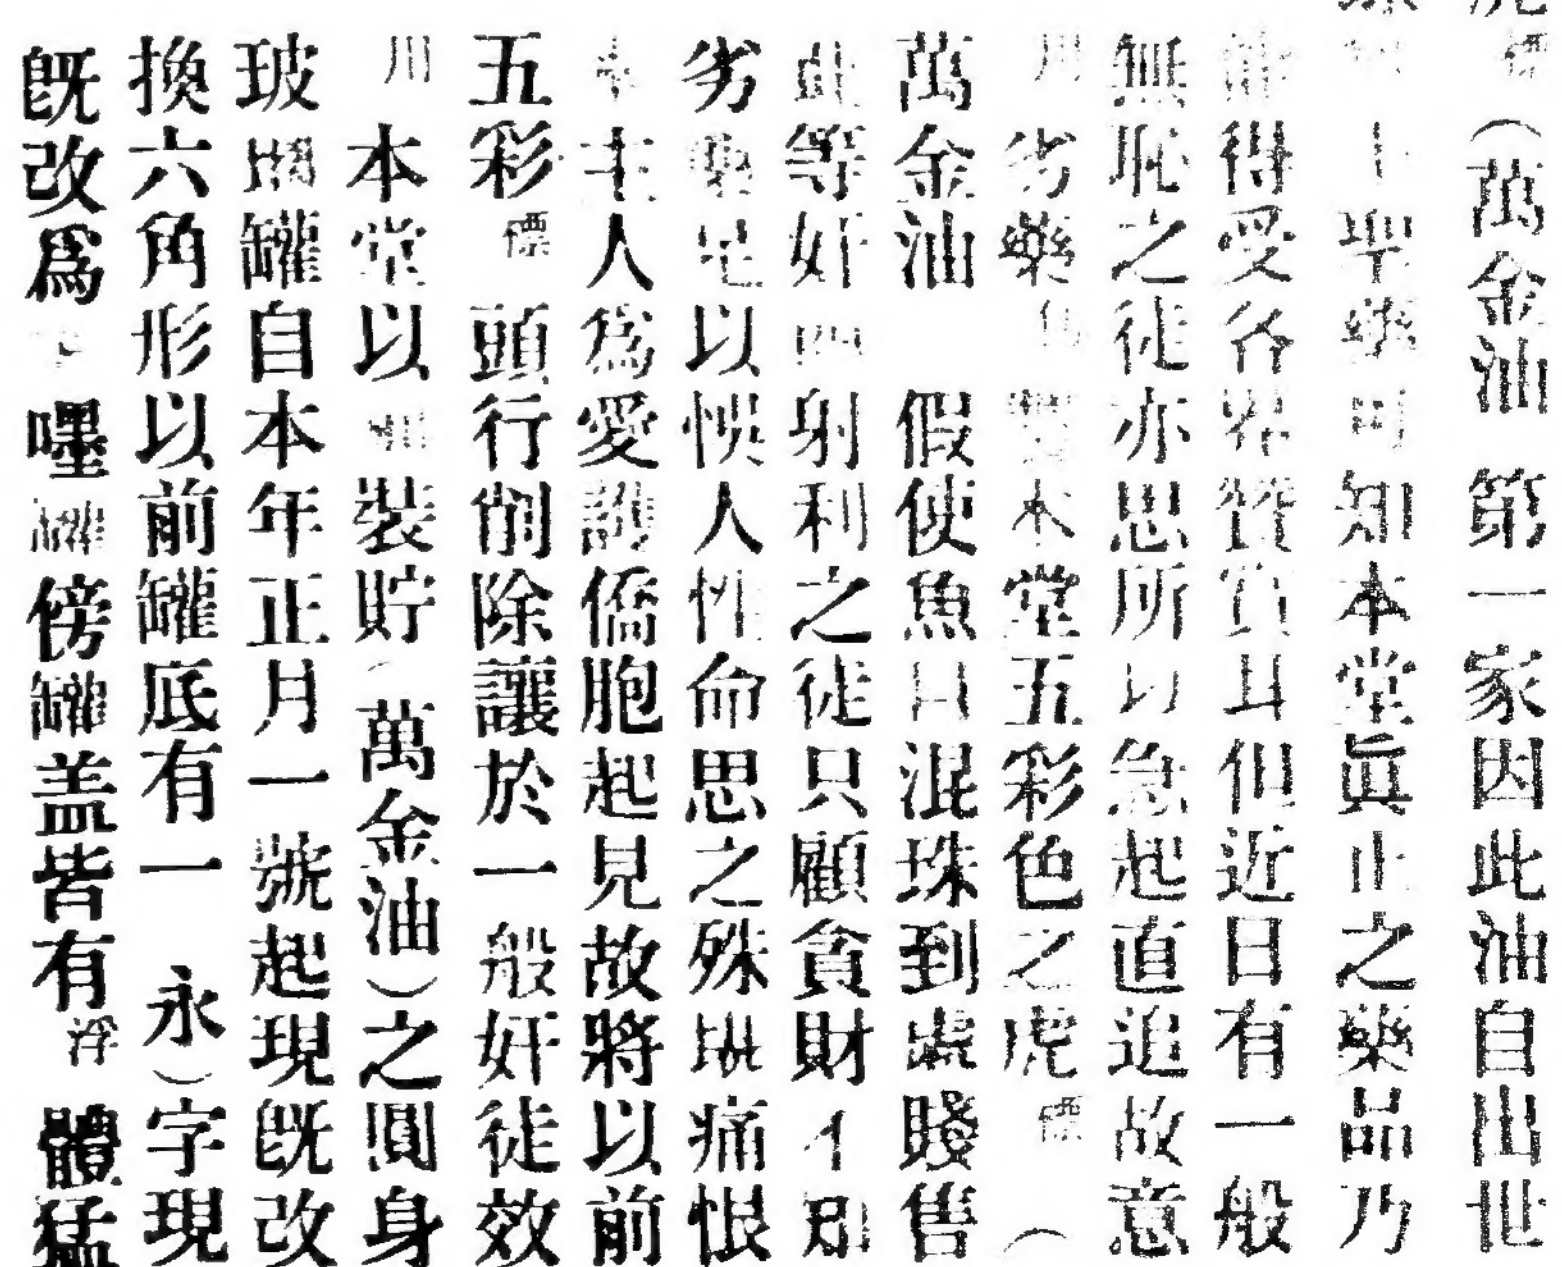 標（萬金油 第一家因此油自出世
聖藥可知本堂眞正之藥品乃
能得受各界贊賞且但近日有一般
無恥之徒亦思所以急起直追故意
用劣藥 本堂五彩色之虎標（
萬金油 假使魚目混珠到處賤售
此等奸 射利之徒只顧貪財不
劣藥足以悞人性命思之殊堪痛恨
本主人爲愛護僑胞起見故將以前
五彩標頭行削除讓於一般奸徒效
用本堂以 裝貯（萬金油）之圓身
玻璃罐自本年正月一號起現旣改
換六角形以前罐底有一 永）字現
旣改爲 嚜罐傍罐盖皆有浮體猛